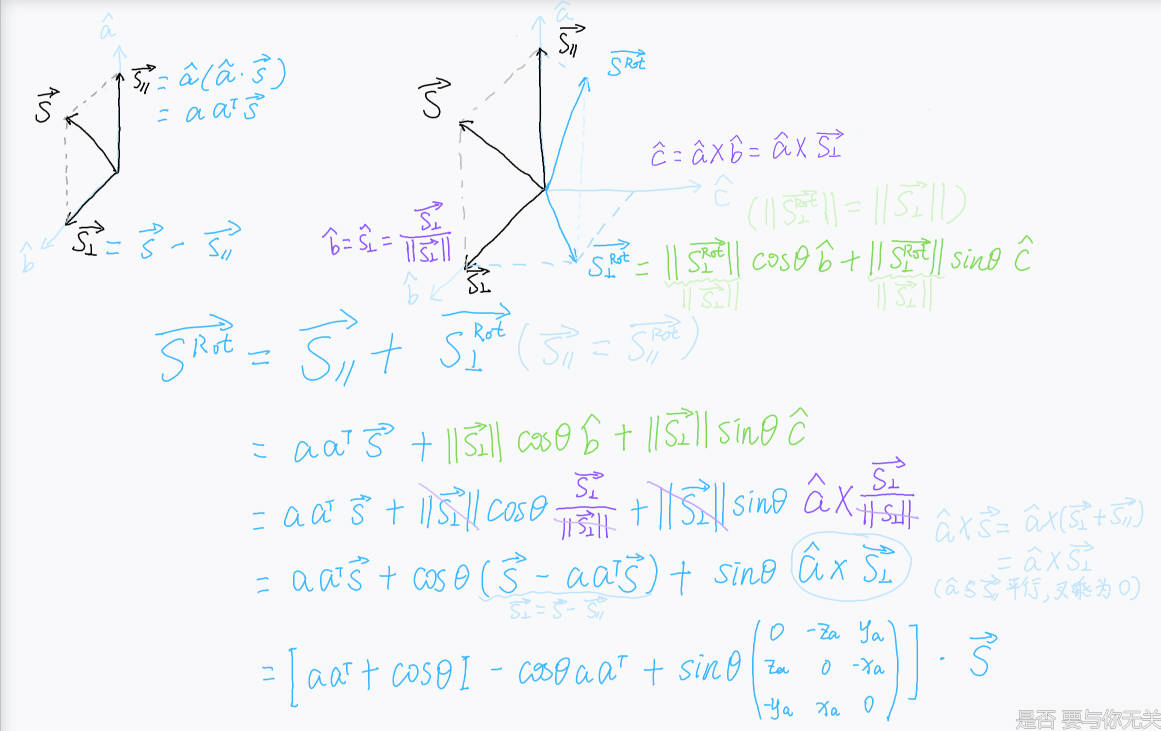 â
S⃗∥ = â(â·s⃗)
= aaᵀs⃗
S⃗
S⃗⊥ = s⃗ - s⃗∥
b̂
â
S⃗∥
S⃗ᴿᵒᵗ
S⃗
ĉ = â×b̂ = â×S⃗⊥
ĉ
(||S⃗⊥ᴿᵒᵗ|| = ||S⃗⊥||)
b̂ = ŝ⊥ = S⃗⊥/||S⃗⊥||
S⃗⊥ᴿᵒᵗ = ||S⃗⊥ᴿᵒᵗ|| cosθ b̂ + ||S⃗⊥ᴿᵒᵗ|| sinθ ĉ
||S⃗⊥|| ||S⃗⊥||
b̂
S⃗⊥
S⃗ᴿᵒᵗ = S⃗∥ + S⃗⊥ᴿᵒᵗ (S⃗∥ = S⃗∥ᴿᵒᵗ)
= aaᵀs⃗ + ||S⃗⊥|| cosθ b̂ + ||S⃗⊥|| sinθ ĉ
= aaᵀs⃗ + ||S⃗⊥|| cosθ S⃗⊥/||S⃗⊥|| + ||S⃗⊥|| sinθ â×S⃗⊥/||S⃗⊥||
â×s⃗ = â×(S⃗⊥+S⃗∥)
= â×S⃗⊥
(â与S⃗∥平行,叉乘为0)
= aaᵀs⃗ + cosθ(s⃗ - aaᵀs⃗) + sinθ â×S⃗⊥
S⃗⊥ = s⃗ - s⃗∥
= [aaᵀ + cosθI - cosθaaᵀ + sinθ(0 -za ya
za 0 -xa
-ya xa 0)]·S⃗
是否 要与你无关